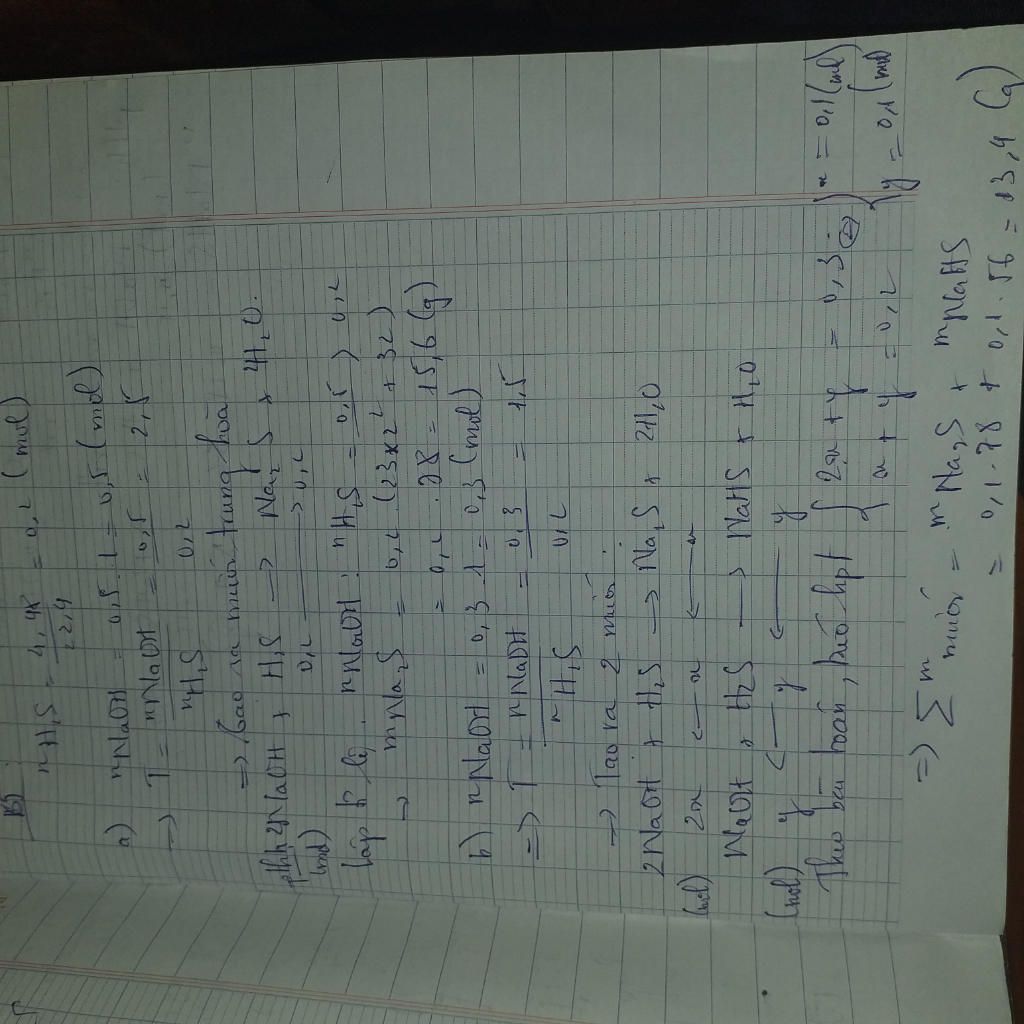 B5
nH₂S = 4,48 / 22,4 = 0,2 (mol)
a) nNaOH = 0,5 . 1 = 0,5 (mol)
→ T = nNaOH / nH₂S = 0,5 / 0,2 = 2,5
=> Tạo ra muối trung hoà
pthh 2NaOH + H₂S → Na₂S + 2H₂O.
(mol) 0,2 → 0,2
Lập tỉ lệ. nNaOH : nH₂S = 0,5 > 0,2
→ mNa₂S = 0,2 . (23x2 + 32)
= 0,2 . 78 = 15,6 (g)
b) nNaOH = 0,3 . 1 = 0,3 (mol)
=> T = nNaOH / nH₂S = 0,3 / 0,2 = 1,5
→ Tạo ra 2 muối
2NaOH + H₂S → Na₂S + 2H₂O
(mol) 2x ← x ← x
NaOH + H₂S → NaHS + H₂O
(mol) y ← y ← y
Theo bài toán, hpt { 2x + y = 0,3 ⇔ { x = 0,1 (mol)
x + y = 0,2 y = 0,1 (mol)
=> ∑ m muối = mNa₂S + mNaHS
= 0,1 . 78 + 0,1 . 56 = 13,4 (g)